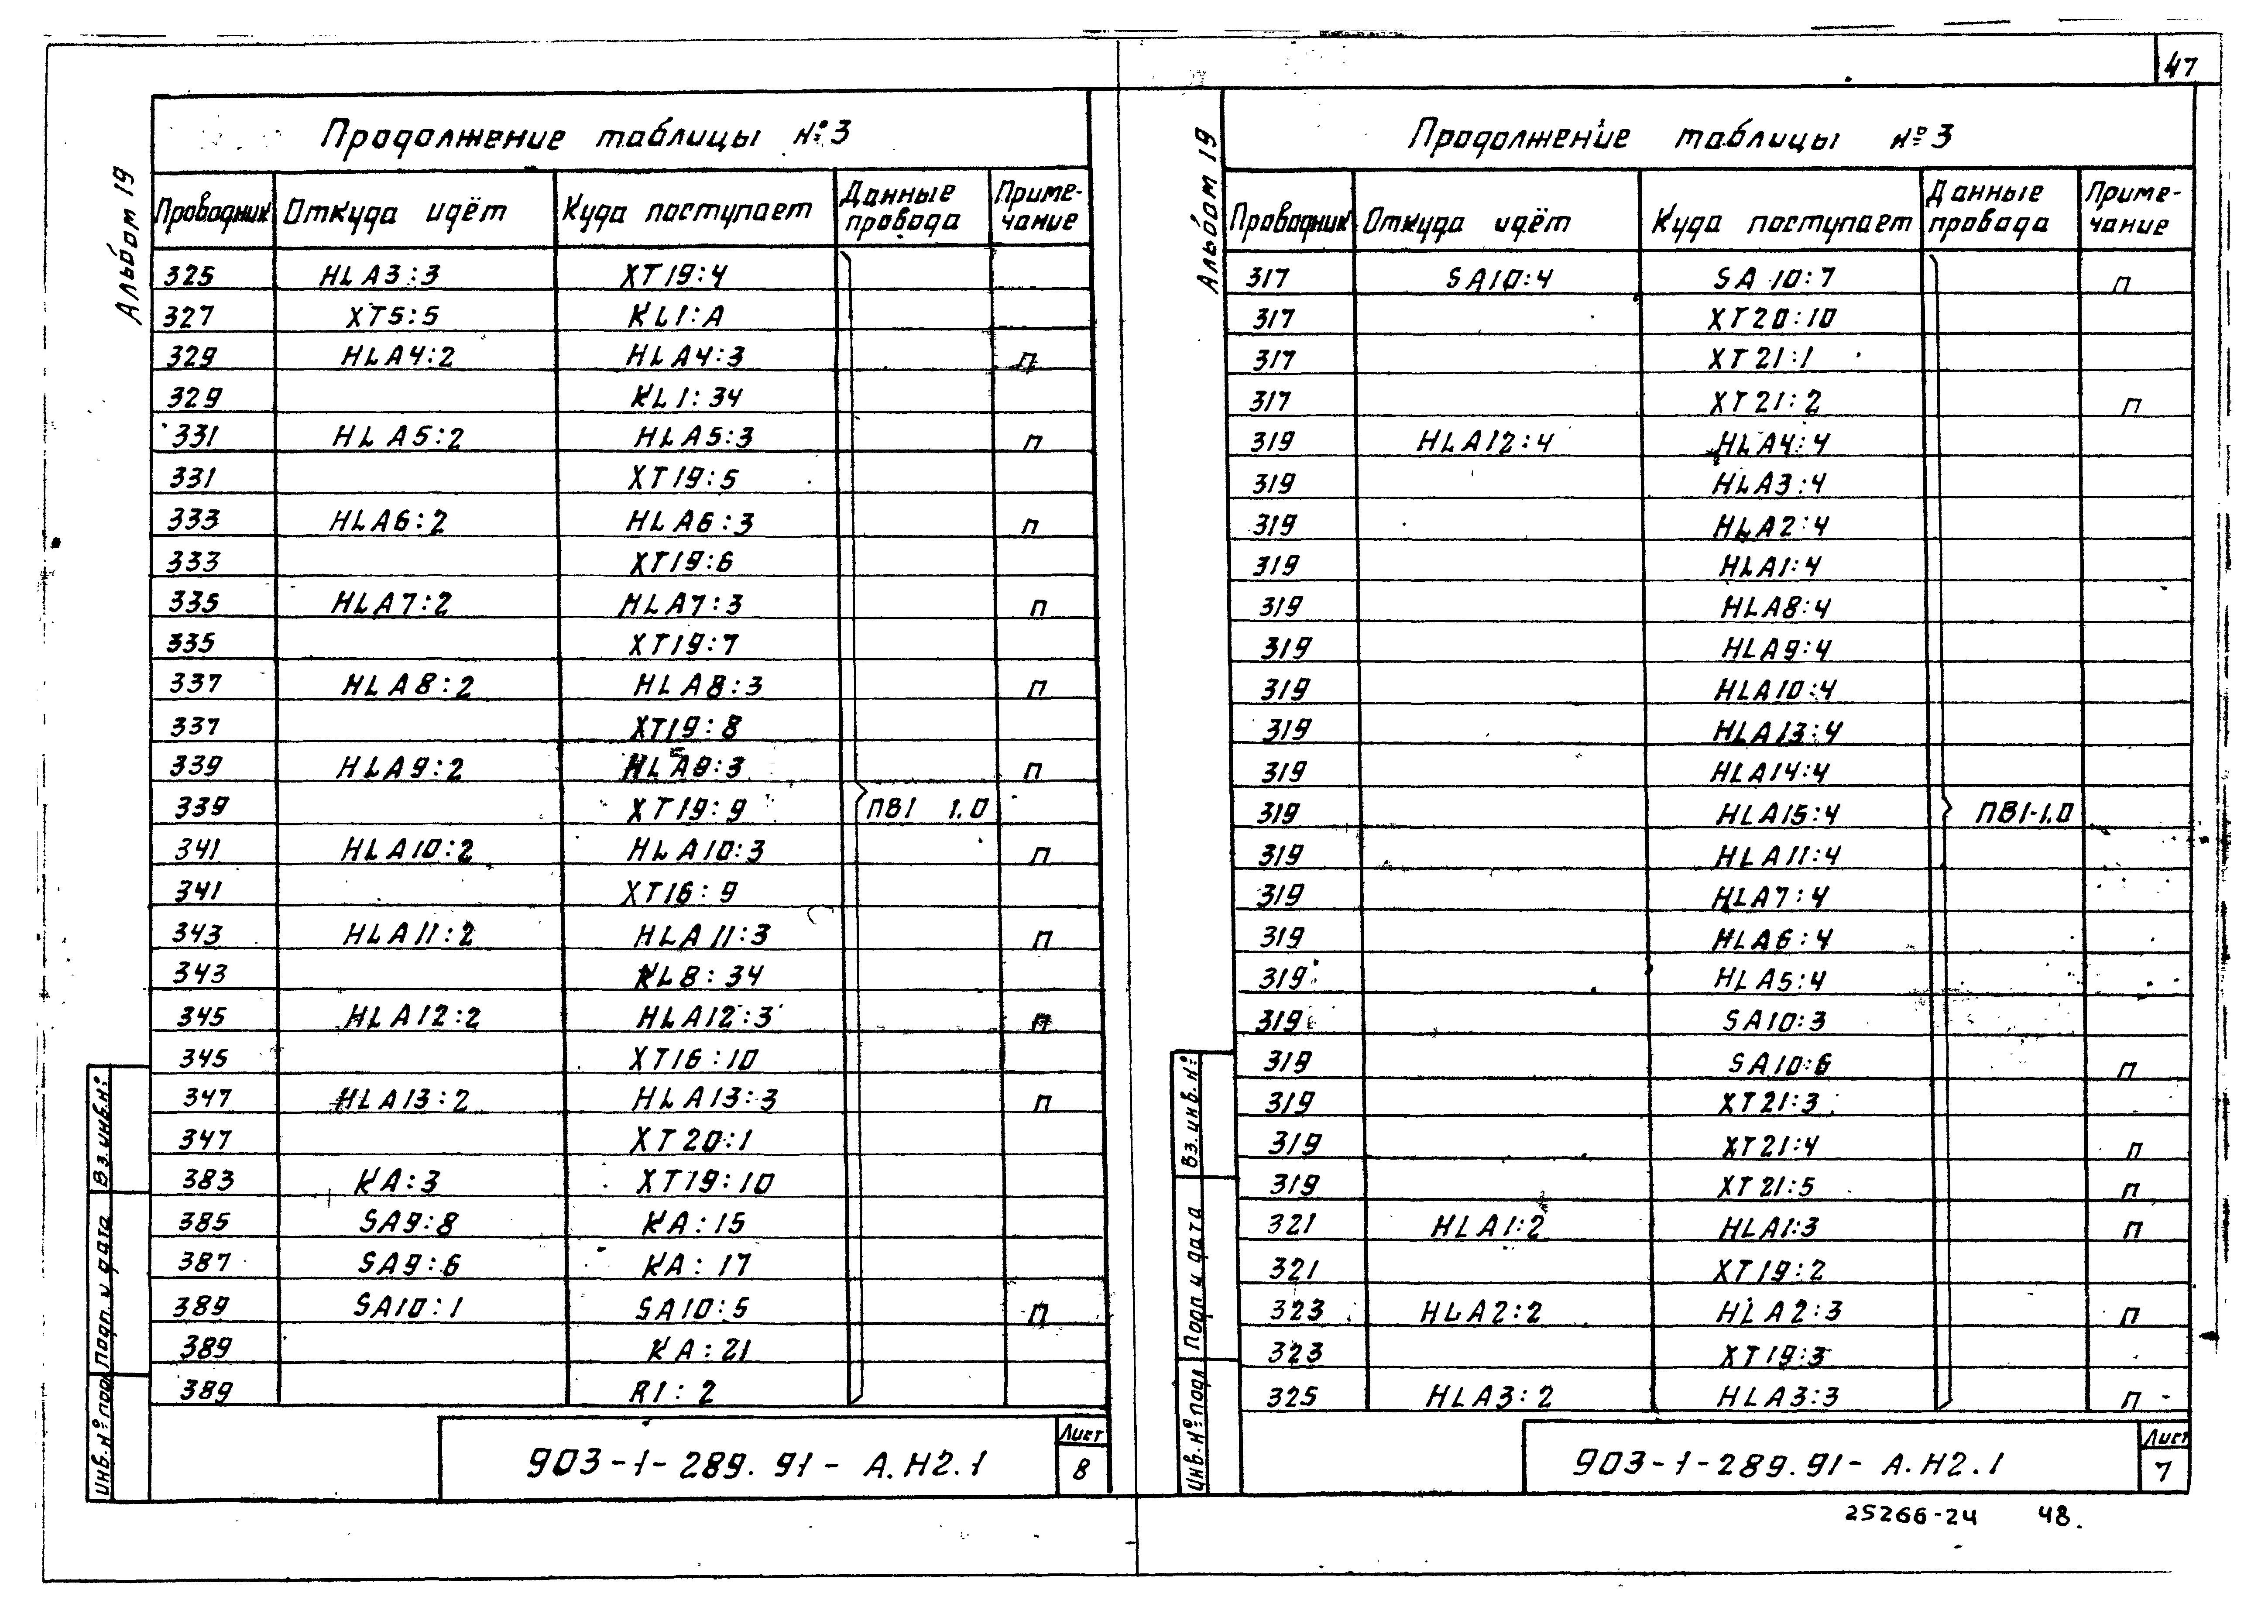 47
Альбом 19
Продолжение таблицы №3
Проводник Откуда идёт Куда поступает Данные провода Примечание
325 HLA3:3 XT19:4
327 XT5:5 KL1:A
329 HLA4:2 HLA4:3 П
329 KL1:34
331 HLA5:2 HLA5:3 П
331 XT19:5
333 HLA6:2 HLA6:3 П
333 XT19:6
335 HLA7:2 HLA7:3 П
335 XT19:7
337 HLA8:2 HLA8:3 П
337 XT19:8
339 HLA9:2 П
339 XT19:9 ПВ1 1.0
341 HLA10:2 HLA10:3 П
341 XT16:9
343 HLA11:2 HLA11:3 П
343 KL8:34
345 HLA12:2 HLA12:3 П
345 XT16:10
347 HLA13:2 HLA13:3 П
347 XT20:1
383 KA:3 XT19:10
385 SA9:8 KA:15
387 SA9:6 KA:17
389 SA10:1 SA10:5 П
389 KA:21
389 R1:2
Вз.инв.№
Подп. и дата
Инв.№ под
903-1-289.91-А.Н2.1
Лист
8
Альбом 19
Продолжение таблицы №3
Проводник Откуда идёт Куда поступает Данные провода Примечание
317 SA10:4 SA10:7 П
317 XT20:10
317 XT21:1
317 XT21:2 П
319 HLA12:4 HLA4:4
319 HLA3:4
319 HLA2:4
319 HLA1:4
319 HLA8:4
319 HLA9:4
319 HLA10:4
319 HLA13:4
319 HLA14:4
319 HLA15:4 ПВ1-1.0
319 HLA11:4
319 HLA7:4
319 HLA6:4
319 HLA5:4
319 SA10:3
319 SA10:6 П
319 XT21:3
319 XT21:4 П
319 XT21:5 П
321 HLA1:2 HLA1:3 П
321 XT19:2
323 HLA2:2 HLA2:3 П
323 XT19:3
325 HLA3:2 HLA3:3 П
Вз.инв.№
Подп и дата
Инв.№подл
903-1-289.91-А.Н2.1
Лист
7
25266-24 48.